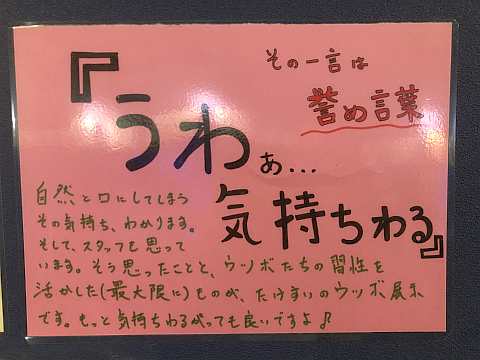 その一言は
誉め言葉
『うわぁ…
気持ちわる』
自然と口にしてしまう
その気持ち、わかります。
そして、スタッフも思って
います。そう思ったことと、ウツボたちの習性を
活かした(最大限に)ものが、たけすいのウツボ展示
です。もっと気持ちわるがっても良いですよ♪